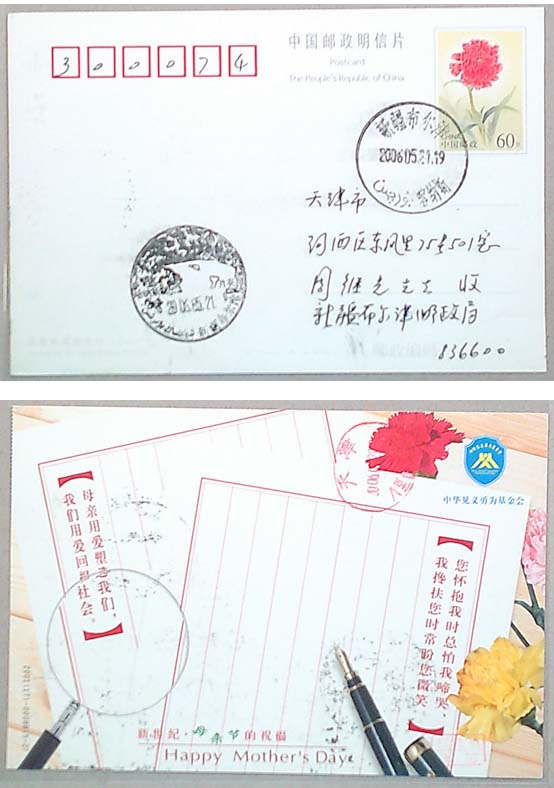 300074
中国邮政明信片
Postcard
The People's Republic of China
中国邮政
60分
新疆布尔津
2006.05.21.19
天津市
河西区东风里75号501室
周继光先生 收
新疆布尔津邮政局
836600
中华见义勇为基金会
【母亲用爱塑造我们，
我们用爱回报社会。】
【您怀抱我时总怕我啼哭，
我搀扶您时常盼您微笑】
新世纪·母亲节的祝福
Happy Mother's Day